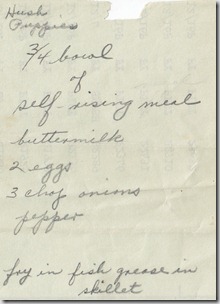 Hush
Puppies
3/4 bowl
of
self-rising meal
buttermilk
2 eggs
3 chop onions
pepper
fry in fish grease in
skillet